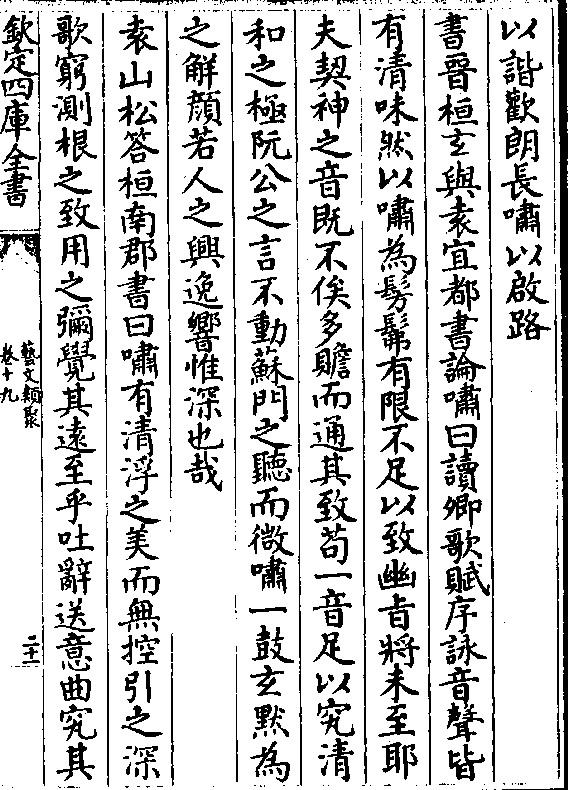 以諧歡朗長嘯以啟路
書晉桓玄與袁宜都書論嘯曰讀卿歌賦序詠音聲皆
有清味然以嘯為髣髴有限不足以致幽旨將未至耶
夫契神之音既不俟多贍而通其致苟一音足以究清
和之極阮公之言不動蘇門之聽而微嘯一鼓玄默為
之解顔若人之興逸響惟深也哉
袁山松答桓南郡書曰嘯有清浮之美而無控引之深
歌窮測根之致用之彌覺其遠至乎吐辭送意曲究其
欽定四庫全書
藝文類聚
卷十九
二十一